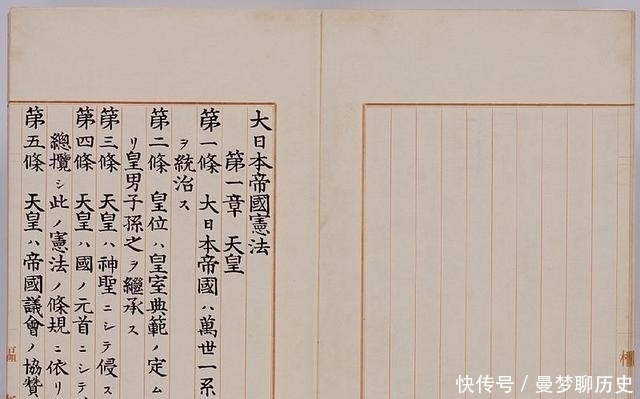 大日本帝國憲法
第一章 天皇
第一條 大日本帝國ハ萬世一系
ヲ統治ス
第二條 皇位ハ皇室典範ノ定ム
リ皇男子孫之ヲ繼承ス
第三條 天皇ハ神聖ニシテ侵ス
第四條 天皇ハ國ノ元首ニシテ
總攬シ此ノ憲法ノ條規ニ依リ
第五條 天皇ハ帝國議會ノ協贊
快传号／曼梦聊历史